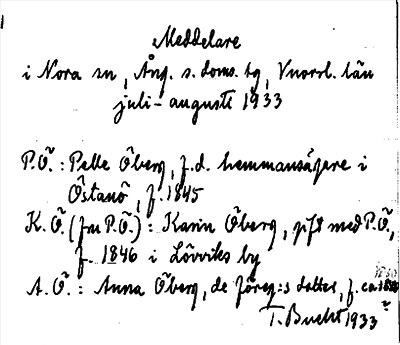 Meddelare
i Nora sn, Ång. s. doms. sg, Vnorrl. län
juli - augusti 1933
P.Ö.: Pelle Öberg, f.d. hemmansägare i
Östanö, f. 1845
K.Ö. (fru P.Ö.): Karin Öberg, gift med P.Ö.,
f. 1846 i Lövviks by
A.Ö.: Anna Öberg, de föreg:s dotter, f. ca
T. Bucht 1933